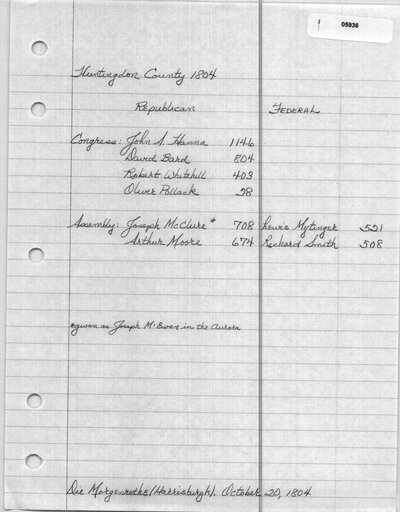 05936
Huntingdon County 1804
Republican FEDERAL
Congress: John A. Hanna 1146
David Bard 804
Robert Whitehill 403
Oliver Pollack 28
Assembly: Joseph McClure* 708 Lewis Mytinger 521
Arthur Moore 674 Richard Smith 508
*given as Joseph M'Ewen in the Aurora
Die Morgenrothe (Harrisburgh). October 20, 1804